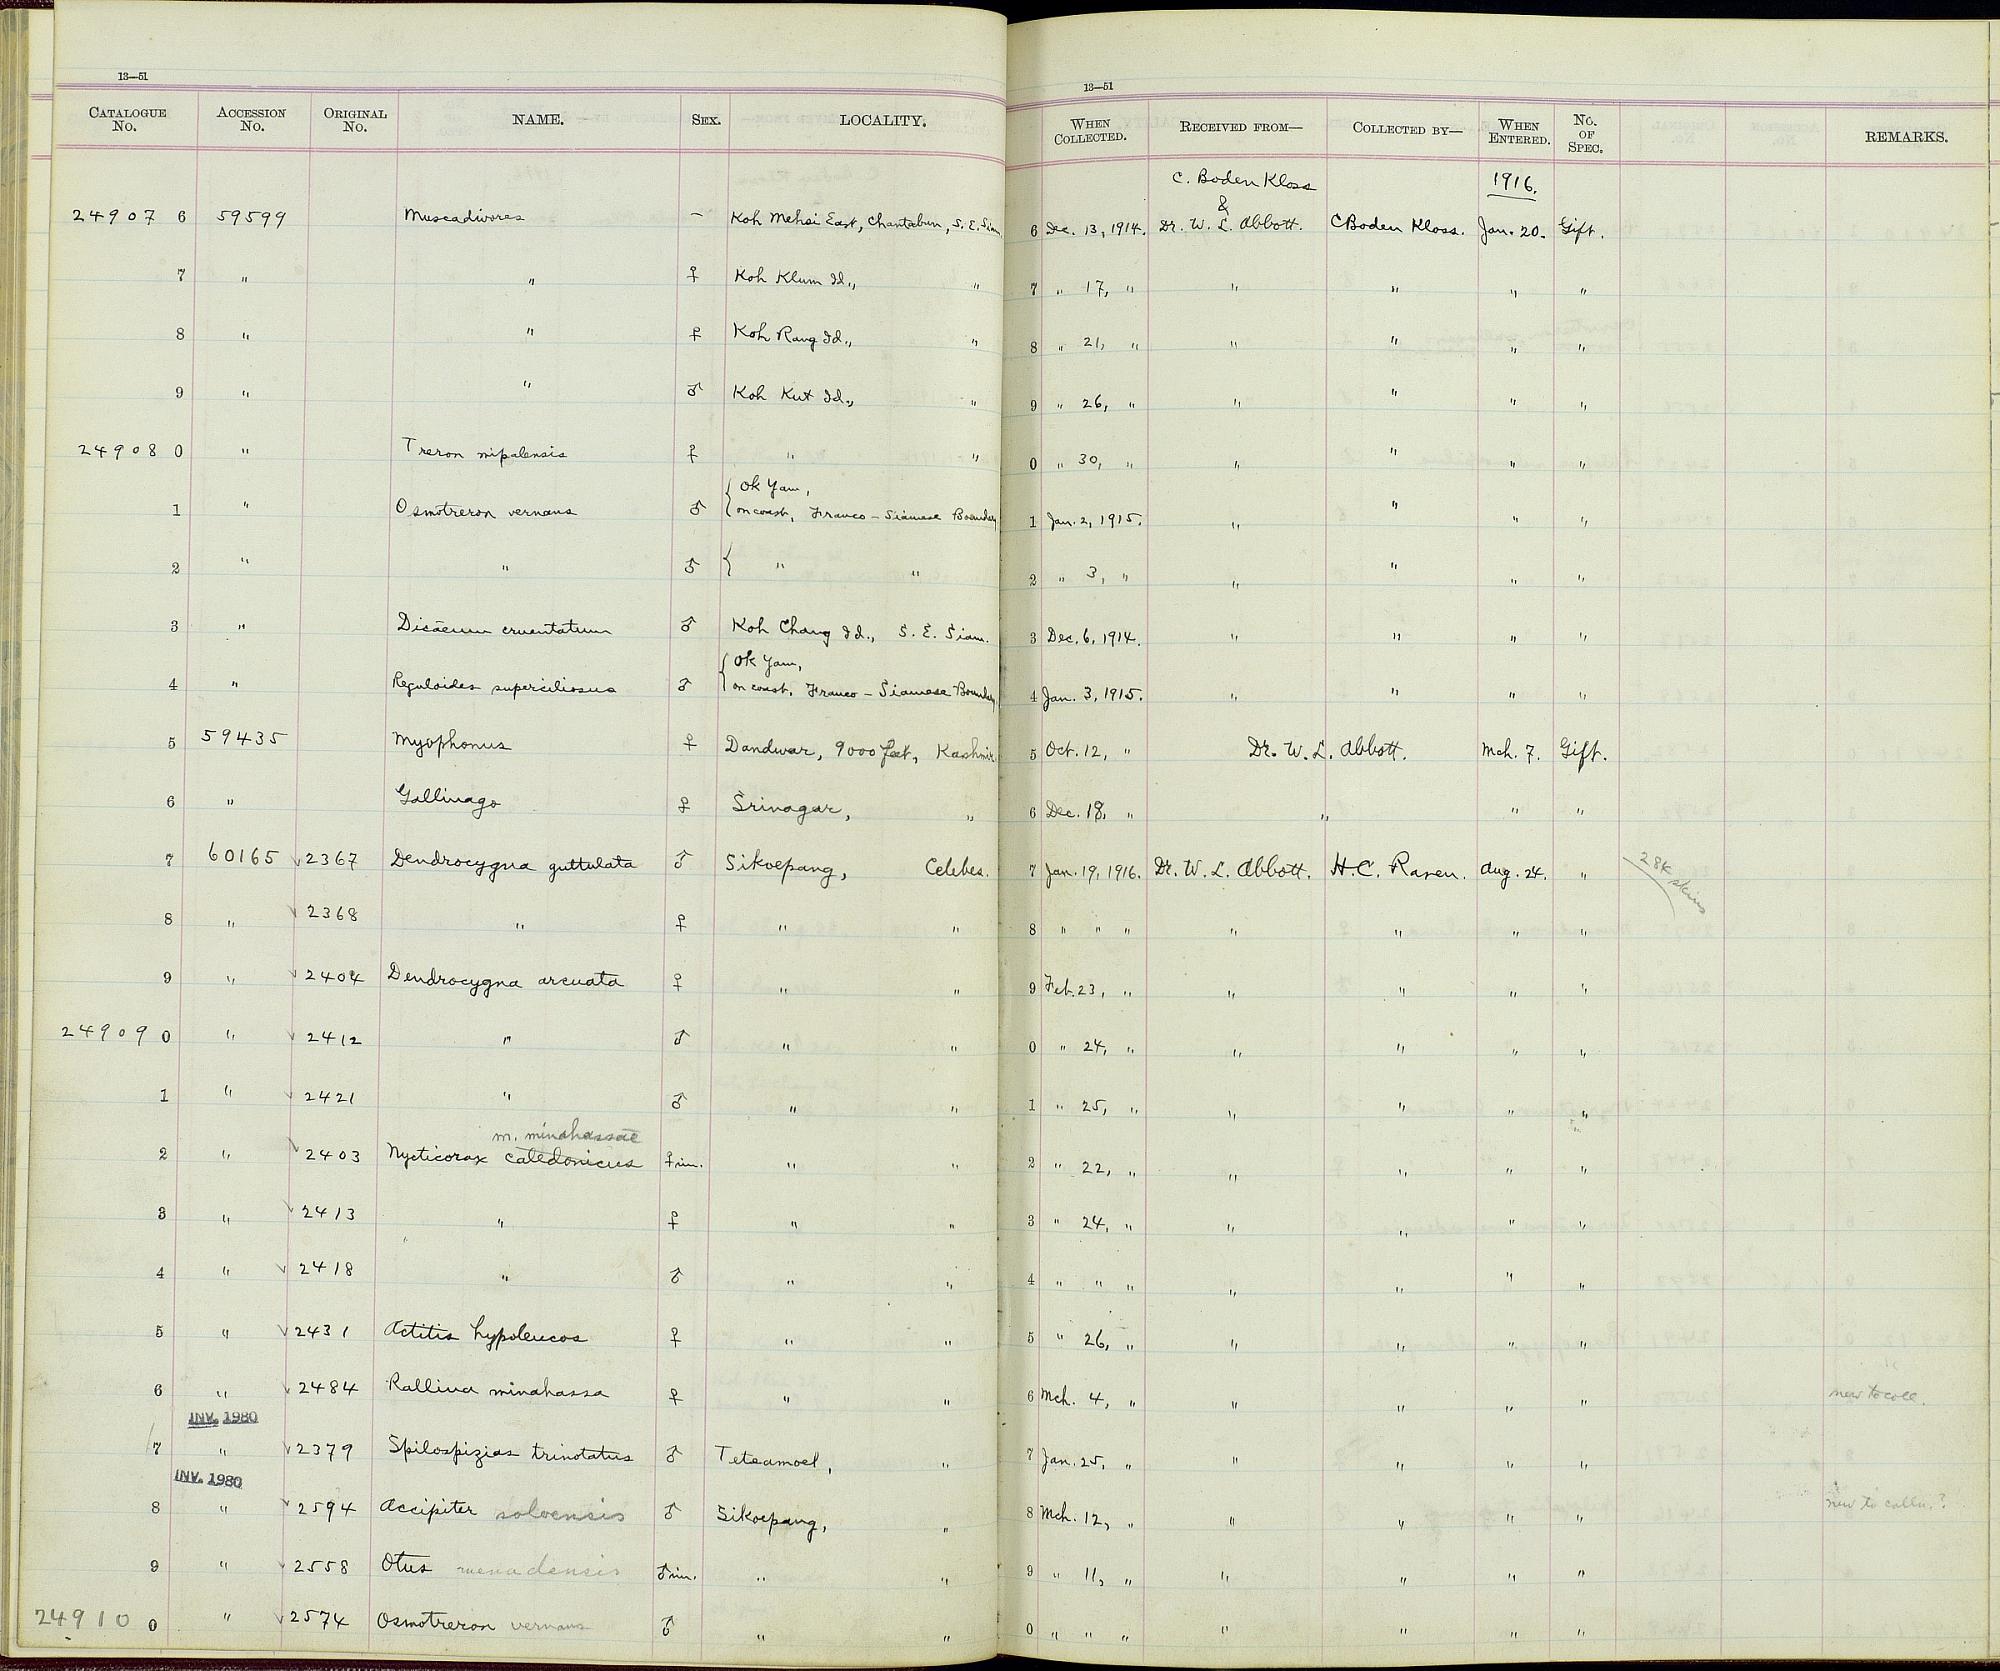 13—51
13—51
CATALOGUE No. ACCESSION No. ORIGINAL No. NAME. SEX. LOCALITY. WHEN COLLECTED. RECEIVED FROM— COLLECTED BY— WHEN ENTERED. No. OF SPEC. REMARKS.
C. Boden Kloss 1916.
&
24907 6 59599 Muscadivores – Koh Mehsi East, Chantabun, S. E. Siam 6 Dec. 13, 1914. Dr. W. L. Abbott. C Boden Kloss. Jan. 20. Gift.
7 " " ♀ Koh Klum Id., " 7 " 17, " " " " "
8 " " ♀ Koh Rang Id., " 8 " 21, " " " " "
9 " " ♂ Koh Kut Id., " 9 " 26, " " " " "
24908 0 " Treron nipalensis ♀ " " 0 " 30, " " " " "
{ Ok Yam,
1 " Osmotreron vernans ♂ on coast, Franco-Siamese Boundary 1 Jan. 2, 1915. " " " "
2 " " ♂ { " " 2 " 3, " " " " "
3 " Dicaeum cruentatum ♂ Koh Chang Id., S. E. Siam. 3 Dec. 6, 1914. " " " "
{ Ok Yam,
4 " Reguloides superciliosus ♂ on coast, Franco-Siamese Boundary 4 Jan. 3, 1915. " " " "
5 59435 Myophonus ♀ Dandwar, 9000 feet, Kashmir 5 Oct. 12, " Dr. W. L. Abbott. Mch. 7. Gift.
6 " Gallinago ♀ Srinagar, " 6 Dec. 18, " " " "
7 60165 √2367 Dendrocygna guttulata ♂ Sikoepang, Celebes. 7 Jan. 19, 1916. Dr. W. L. Abbott. H. C. Raven. Aug. 24. " 28k skins
8 " √2368 " ♀ " " 8 " " " " " " "
9 " √2404 Dendrocygna arcuata ♀ " " 9 Feb. 23, " " " " "
24909 0 " √2412 " ♂ " " 0 " 24, " " " " "
1 " √2421 " ♂ " " 1 " 25, " " " " "
m. minahassae
2 " √2403 Nycticorax caledonicus ♀ im. " " 2 " 22, " " " " "
3 " √2413 " ♀ " " 3 " 24, " " " " "
4 " √2418 " ♂ " " 4 " " " " " " "
5 " √2431 Actitis hypoleucos ♀ " " 5 " 26, " " " " "
6 " √2484 Rallina minahassa ♀ " " 6 Mch. 4, " " " " " new to coll.
INV. 1980
7 " √2379 Spilospizias trinotatus ♂ Teteamoel, " 7 Jan. 25, " " " " "
INV. 1980
8 " √2594 Accipiter soloensis ♂ Sikoepang, " 8 Mch. 12, " " " " " new to colln.?
9 " √2558 Otus menadensis ♂ im. " " 9 " 11, " " " " "
24910 0 " √2574 Osmotreron vernans ♂ " " 0 " " " " " " "